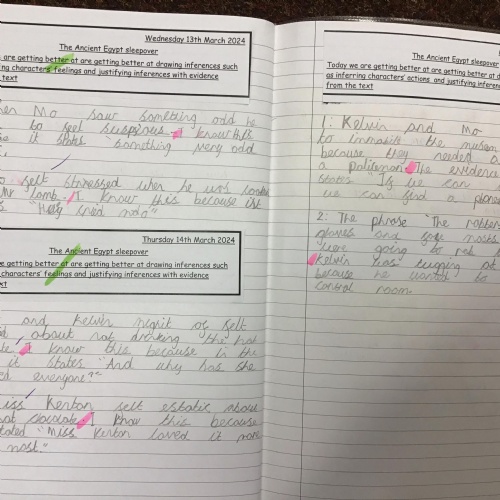 Wednesday 13th March 2024
The Ancient Egypt sleepover
are getting better at are getting better at drawing inferences such
characters' feelings and justifying inferences with evidence
text
Mo saw something odd he
to feel suspicious. I know this
it states "something very odd
felt stressed when he was
tomb. I know this because it
cried
Thursday 14th March 2024
The Ancient Egypt sleepover
getting better at are getting better at drawing inferences such
characters' feelings and justifying inferences with evidence
and Kelvin might of felt
about not drinking the hot
I know this because in the
it states "And why has she
everyone?"
Kenton felt estatic about
chocolate. I know this because
"Miss Kenton loved it more
most."
The Ancient Egypt sleepover
Today we are getting better at are getting better at
as inferring characters' actions and justifying
from the text
1: Kelvin and Mo
to the
because they needed a
a policeman. The evidence
states "If we can
we can find a phone
2: The phrase "The robbers
gloves and masks
were going to rob
Kelvin was tugging at
because he wanted to
control room.